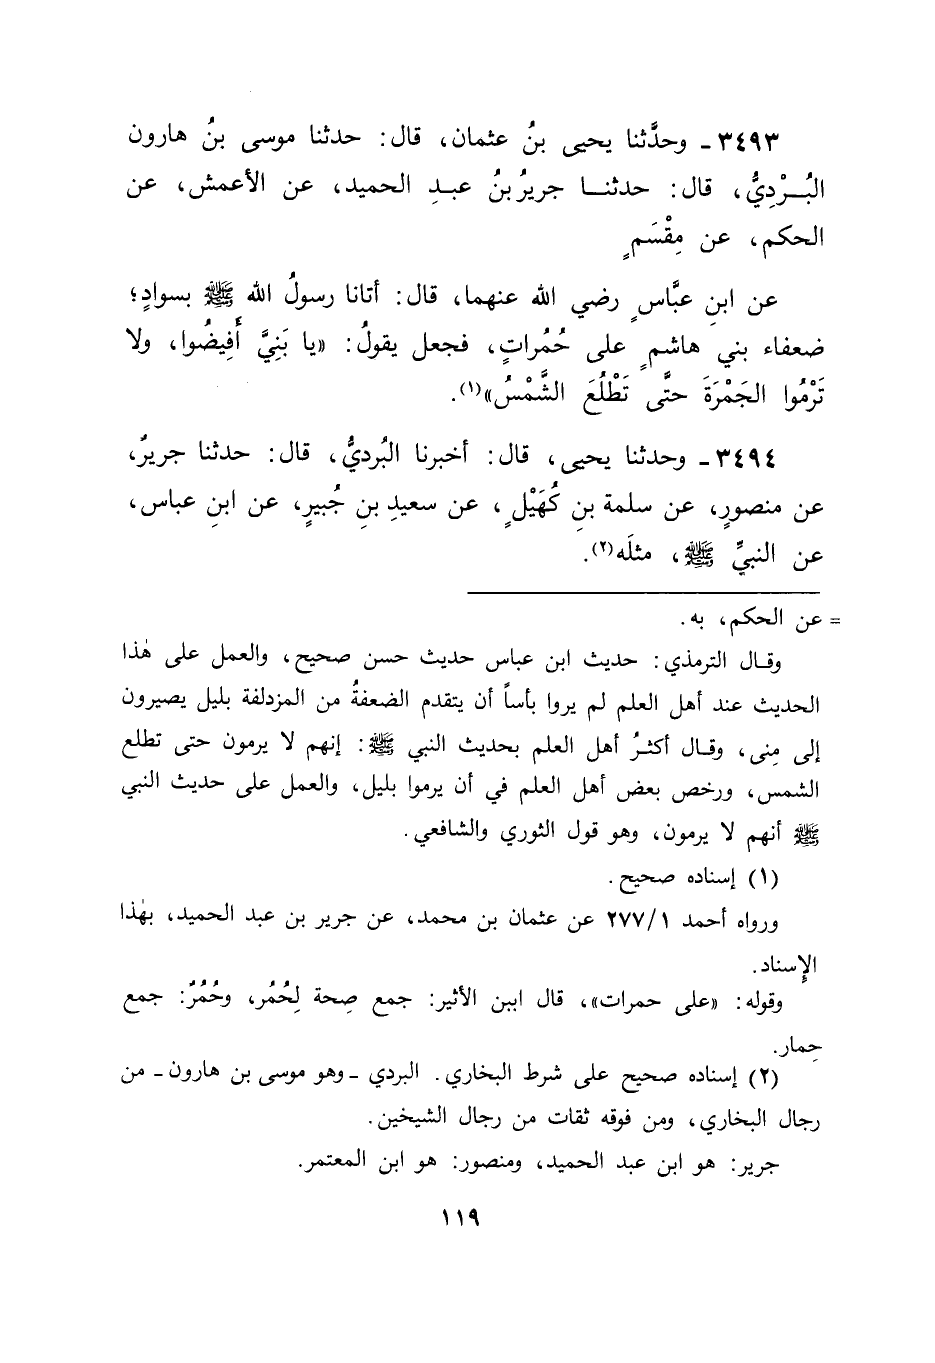 ٣٤٩٣ ـ وحدَّثنا يحيى بنُ عثمان، قال: حدثنا موسى بنُ هارون
البُـرْدِيُّ، قال: حدثنـا جريرُ بنُ عبـدِ الحميد، عن الأعمش، عن
الحكم، عن مِقْسَمٍ
عن ابنِ عبَّاسٍ رضي الله عنهما، قال: أتانا رسولُ الله ﷺ بسوادٍ؛
ضعفاء بني هاشمٍ على حُمُراتٍ، فجعل يقولُ: «يا بَنِيَّ أَفِيضُوا، ولا
تَرْمُوا الجَمْرَةَ حتَّى تَطْلُعَ الشَّمْسُ»(١).
٣٤٩٤ ـ وحدثنا يحيى، قال: أخبرنا البُرديُّ، قال: حدثنا جريرٌ،
عن منصورٍ، عن سلمة بنِ كُهَيْلٍ، عن سعيدِ بنِ جُبيرٍ، عن ابنِ عباس،
عن النبيِّ ﷺ، مثلَه(٢).
= عن الحكم، به.
وقـال الترمذي: حديث ابن عباس حديث حسن صحيح، والعمل على هٰذا
الحديث عند أهل العلم لم يروا بأساً أن يتقدم الضعفةُ من المزدلفة بليل يصيرون
إلى مِنى، وقـال أكثـرُ أهل العلم بحديث النبي ﷺ: إنهم لا يرمون حتى تطلع
الشمس، ورخص بعض أهل العلم في أن يرموا بليل، والعمل على حديث النبي
ﷺ أنهم لا يرمون، وهو قول الثوري والشافعي.
(١) إسناده صحيح.
ورواه أحمد ٢٧٧/١ عن عثمان بن محمد، عن جرير بن عبد الحميد، بهٰذا
الإِسناد.
وقوله: «على حمرات»، قال اببن الأثير: جمع صِحة لِحُمُر، وحُمُرٌ: جمع
حِمار.
(٢) إسناده صحيح على شرط البخاري. البردي ـ وهو موسى بن هارون ـ من
رجال البخاري، ومن فوقه ثقات من رجال الشيخين.
جرير: هو ابن عبد الحميد، ومنصور: هو ابن المعتمر.
١١٩